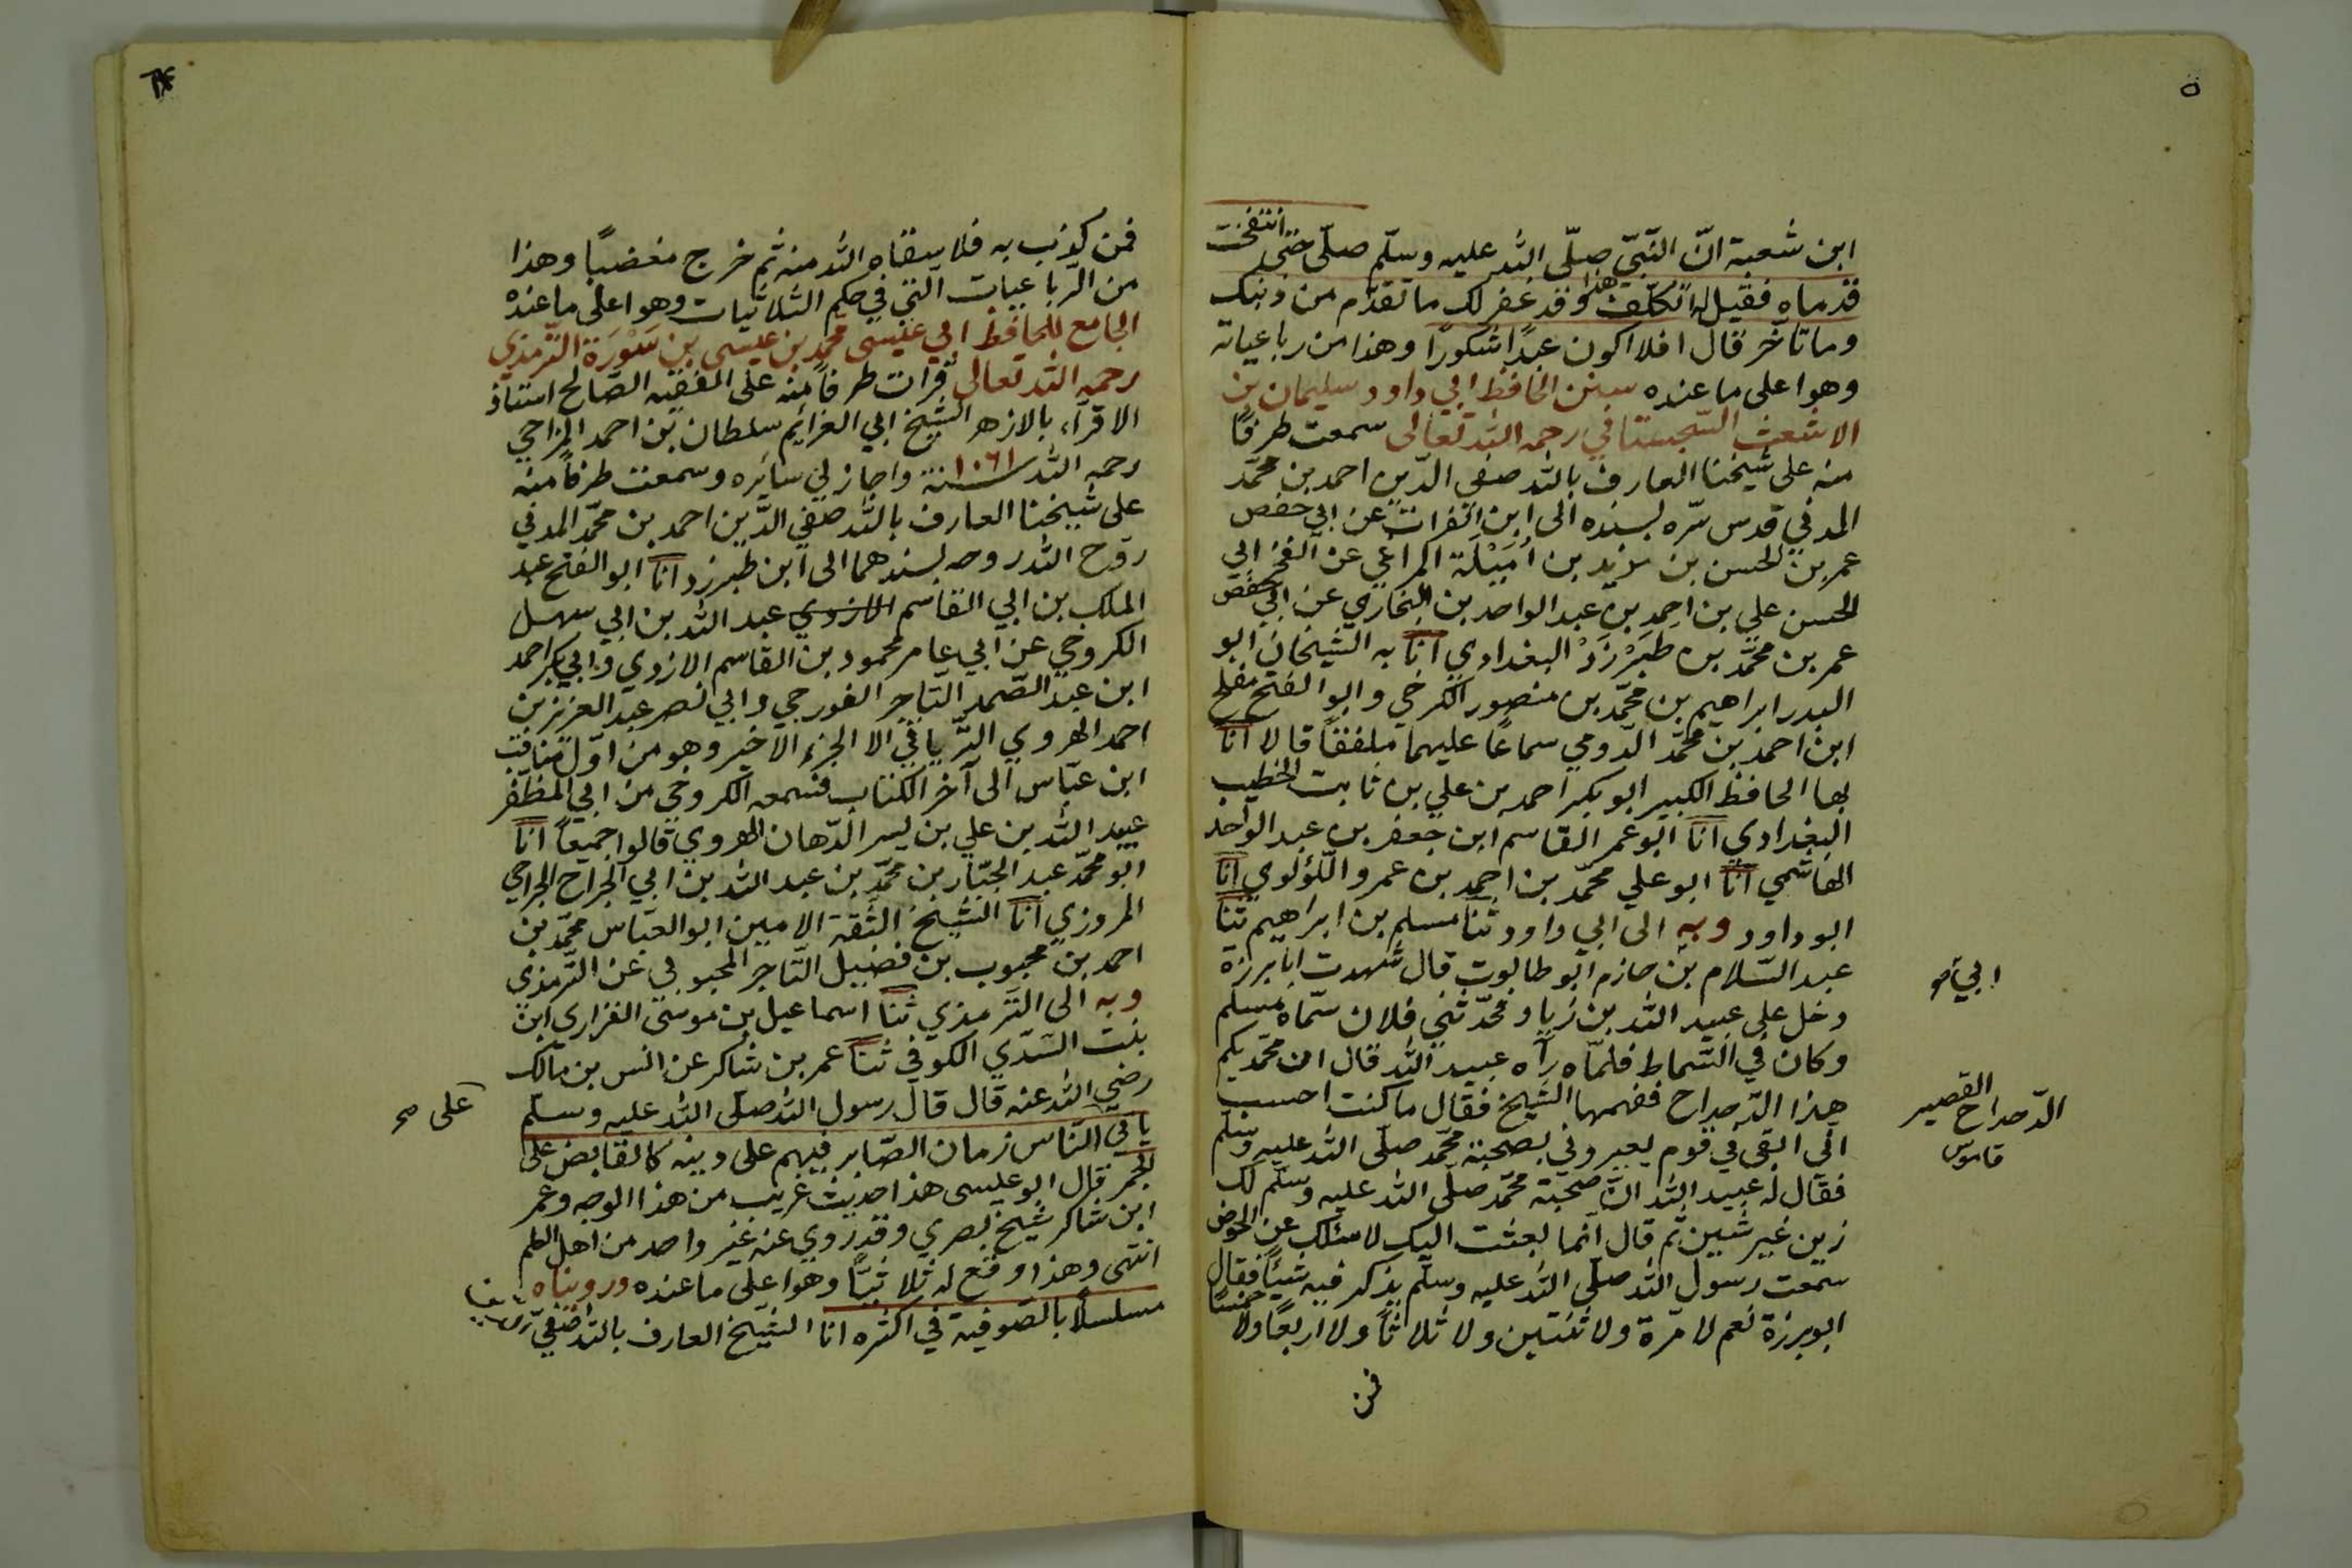 ٥
ابن شعبة انّ النّبيّ صلّى الله عليه وسلّم صلّى حتى انتفخت
قدماه فقيل له اتكلّف هذا وقد غفر لك ما تقدّم من ذنبك
وما تأخّر قال افلا اكون عبدًا شكورًا وهذا من رباعياته
وهو اعلى ما عنده سنن الحافظ ابي داود سليمان بن
الاشعث السّجستاني رحمه الله تعالى سمعت طرفًا
منه على شيخنا العارف بالله صفي الدّين احمد بن محمّد
المدني قدس سّره بسنده الى ابن الفرات عن ابي حفص
عمر بن الحسن بن مزيد بن أميلة المراغي عن الفخر ابي
الحسن علي بن احمد بن عبد الواحد بن البخاري عن ابي حفص
عمر بن محمّد بن طبرزد البغدادي انا به الشيخان ابو
البدر ابراهيم بن محمّد بن منصور الكرخي وابو الفتح مفلح
ابن احمد بن محمّد الدّومي سماعًا عليهما ملفقًا قالا انا
بها الحافظ الكبير ابو بكر احمد بن علي بن ثابت الخطيب
البغدادي انا ابو عمر القاسم ابن جعفر بن عبد الواحد
الهاشمي انا ابو علي محمّد بن احمد بن عمرو اللّؤلؤي انا
ابو داود وبه الى ابي داود ثنا مسلم بن ابراهيم ثنا
عبد السّلام بن حازم ابو طالوت قال شهدت ابا برزة
دخل على عبيد الله بن زياد فحدّثني فلان سمّاه مسلم
وكان في السّماط فلمّاه رآه عبيد الله قال ان محمّديكم
هذا الدّحداح ففهمها الشّيخ فقال ما كنت احسب
انّي ابقى في قوم يعيروني بصحبة محمّد صلّى الله عليه وسلّم
فقال له عبيد الله انّ صحبة محمّد صلّى الله عليه وسلّم لك
زين غير شين ثم قال انّما بعثت اليك لاسئلك عن الحوض
سمعت رسول الله صلّى الله عليه وسلّم يذكر فيه شيئًا فقال
ابو برزة نعم لا مّرة ولا ثنتين ولا ثلاثًا ولا اربعًا ولا خمسًا
فمن
الدّحداح القصير
قاموس
فمن كذب به فلا سقاه الله منه ثم خرج مغضبًا وهذا
من الرّباعيات التي في حكم الثلاثيات وهو اعلى ما عنده
الجامع للحافظ ابي عيسى محمّد بن عيسى بن سَوْرَة التّرمذي
رحمه الله تعالى قرات طرفًا منه على الفقيه الصّالح استاذ
الاقرآء بالازهر الشيخ ابي العزايم سلطان بن احمد المزاحي
رحمه الله سنة ١٠٦١ واجاز لي سائره وسمعت طرفًا منه
على شيخنا العارف بالله صفي الدّين احمد بن محمّد المدني
روّح الله روحه بسندهما الى ابن طبرزد انا ابو الفتح عبد
الملك بن ابي القاسم الازدي عبد الله بن ابي سهل
الكروخي عن ابي عامر محمود بن القاسم الازدي وابي بكر احمد
ابن عبد الصّمد التّاجر الغورجي وابي نصر عبد العزيز بن
احمد الهروي التّرياقي الا الجزء الاخير وهو من اوّل مناقب
ابن عبّاس الى آخر الكتاب فسمعه الكروخي من ابي المظفّر
عبيد الله بن علي بن يسر الدّهان الهروي قالوا جميعًا انا
ابو محمّد عبد الجبّار بن محمّد بن عبد الله بن ابي الجراح الجراحي
المروزي انا الشّيخ الثّقة الامين ابو العبّاس محمّد بن
احمد بن محبوب بن فضيل التّاجر المحبوبي عن التّرمذي
وبه الى التّرمذي ثنا اسماعيل بن موسى الفزاري ابن
بنت السّدي الكوفي ثنا عمر بن شاكر عن انس بن مالك
رضي الله عنه قال قال رسول الله صلّى الله عليه وسلّم
ياتي النّاس زمان الصّابر فيهم على دينه كالقابض على
الجمر قال ابو عيسى هذا حديث غريب من هذا الوجه وعمر
ابن شاكر شيخ بصري وقد روي عنه غير واحد من اهل العلم
انتهى وهذا وقع له ثلاثيًّا وهو اعلى ما عنده ورويناه
مسلسلاً بالصّوفية في اكثره انا الشّيخ العارف بالله صفي
على صح